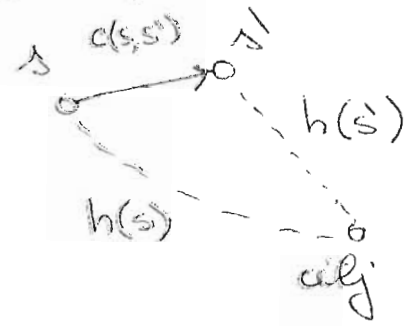 s c(s,s') s'
h(s')
h(s)
cilj